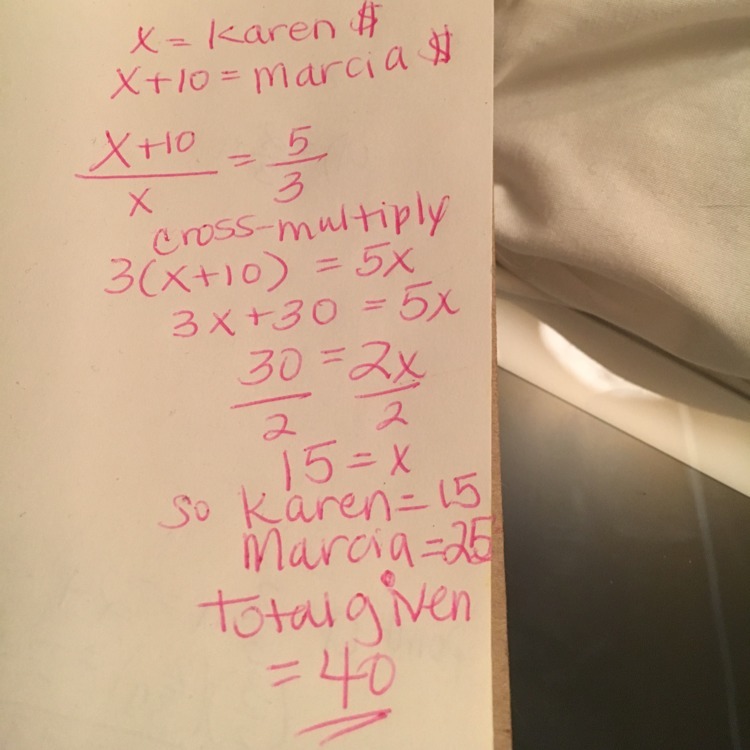 x = Karen $
x+10 = marcia $
x+10 / x = 5 / 3
cross-multiply
3(x+10) = 5x
3x+30 = 5x
30 / 2 = 2x / 2
15 = x
so Karen = 15
Marcia = 25
Total given
= 40